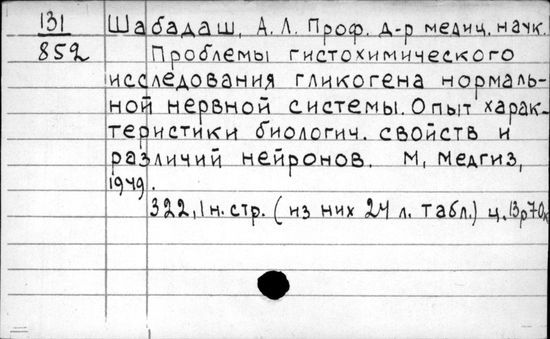 131
852
Шабадаш, А. Л. Проф. д-р медиц. начк.
Проблемы гистохимического
исследования гликогена нормаль-
ной нервной системы. Опыт харак-
теристики биологич. свойств и
различий нейронов. М, Медгиз,
1949.
322, 1 н. стр. (из них 24 л. табл.) ц. 13р70к